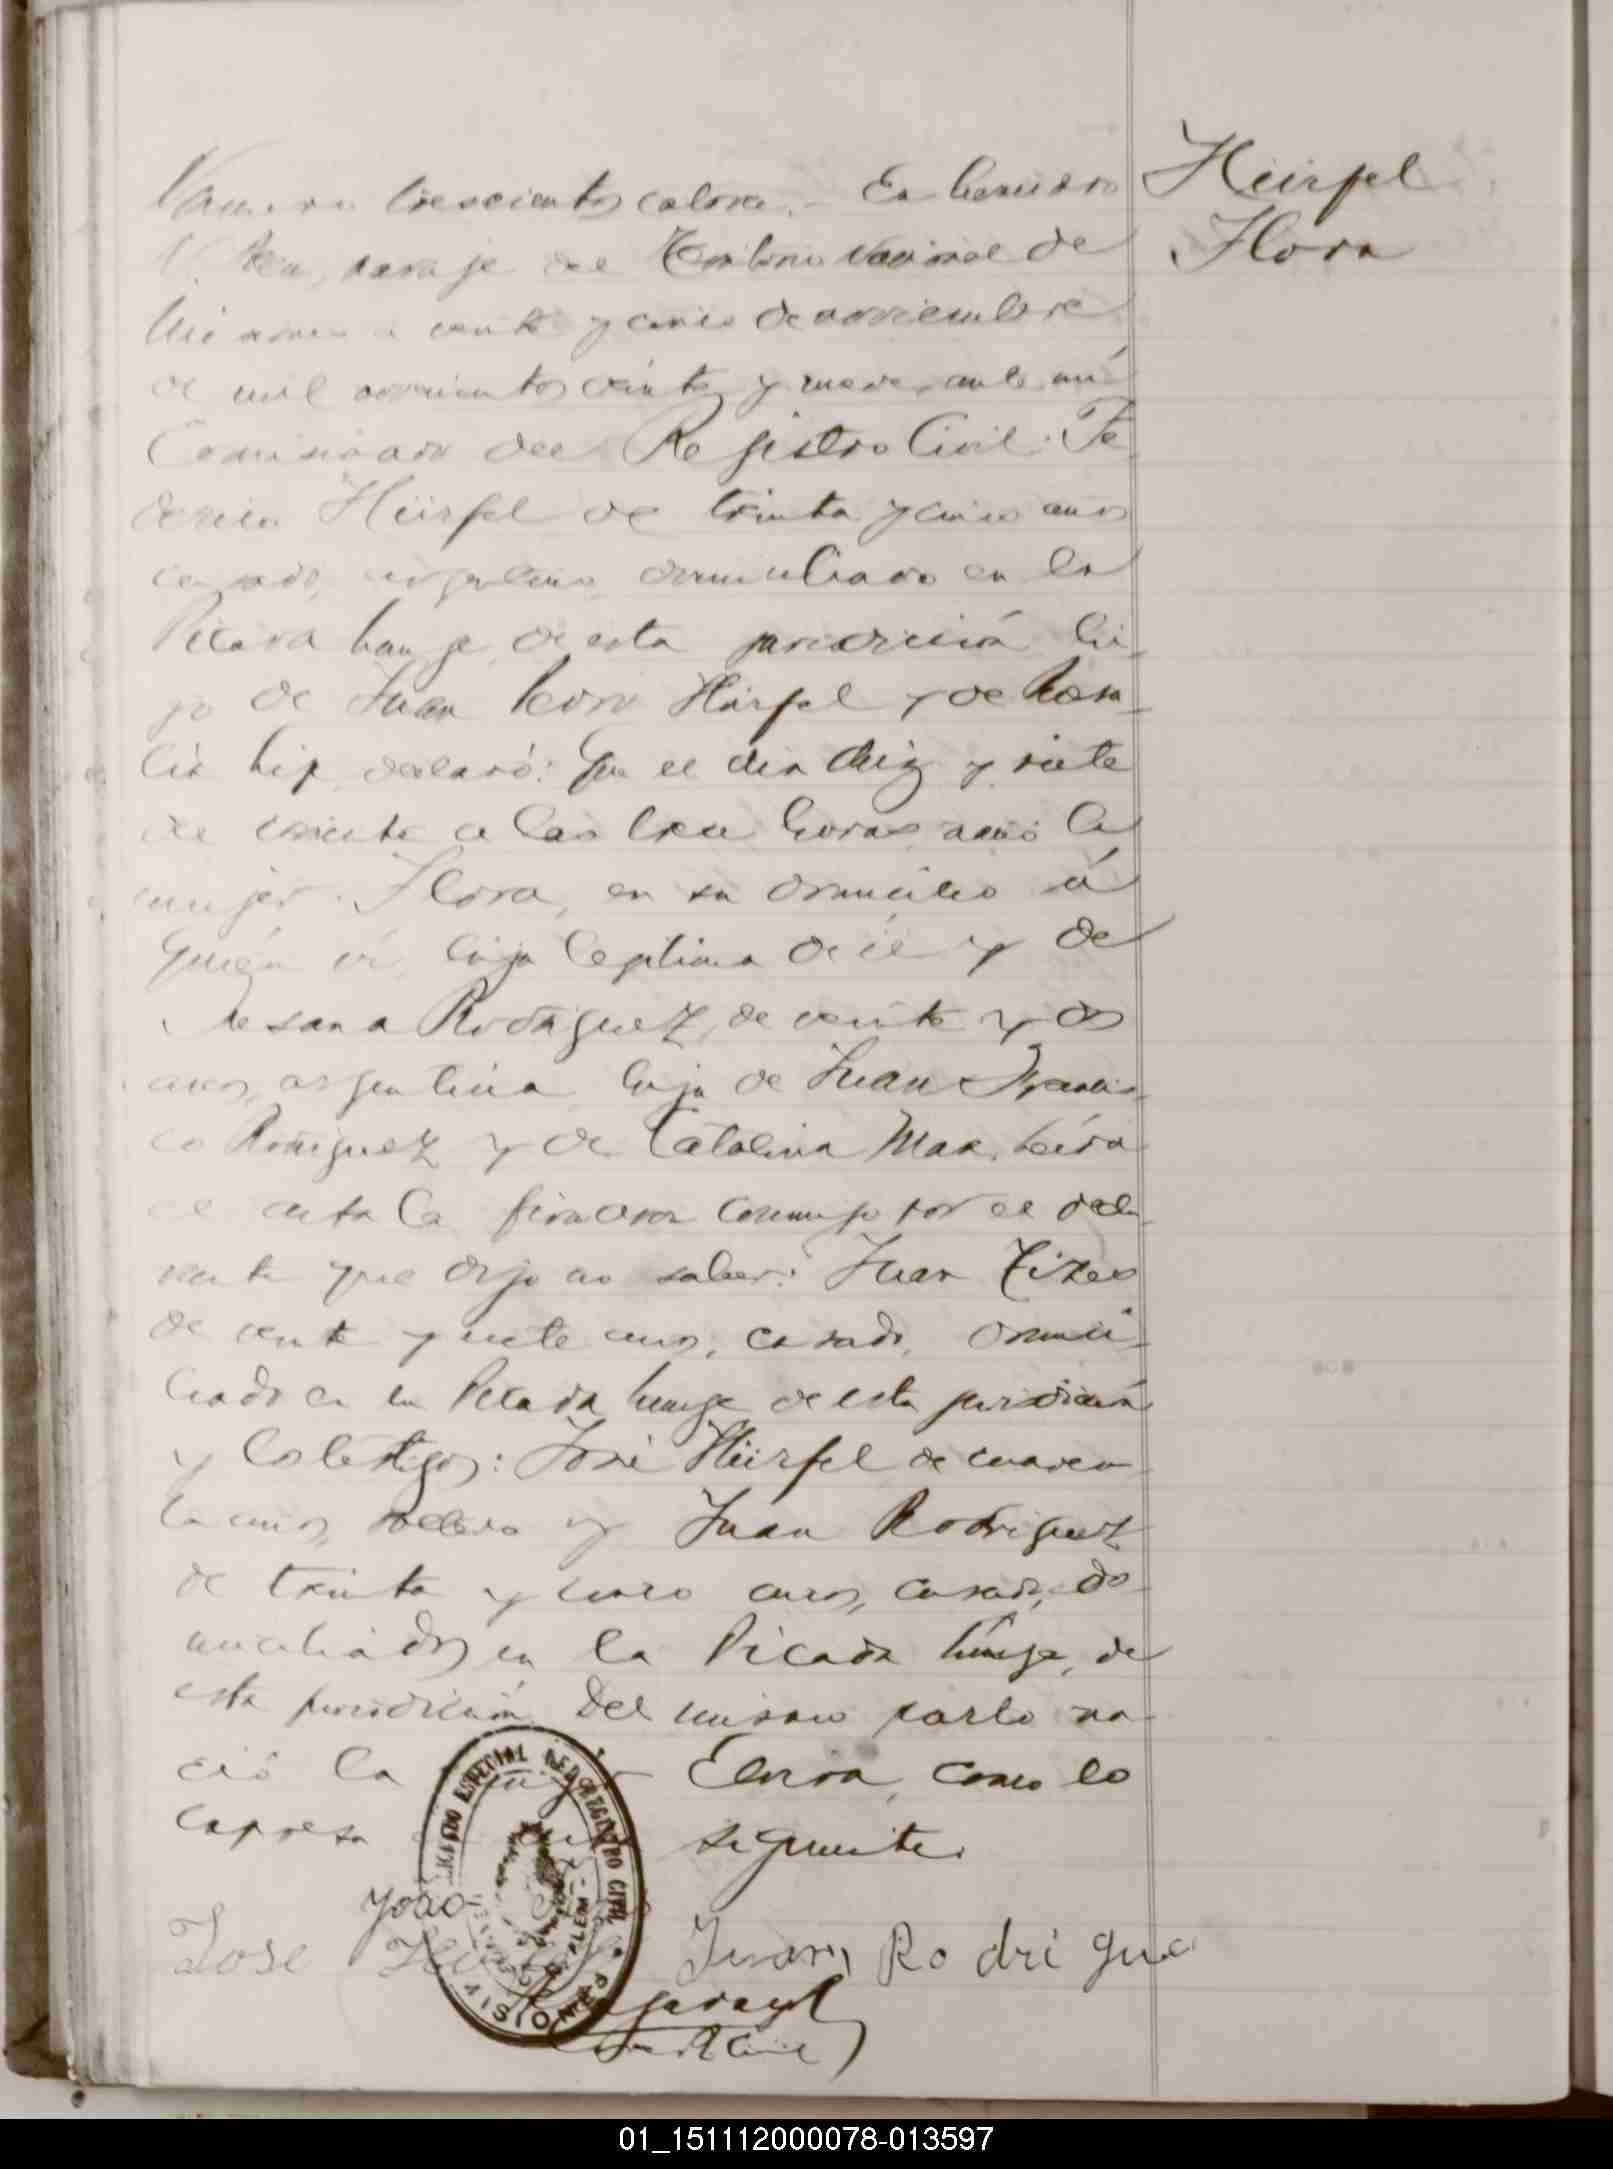 Hürfel
Flora
Numero trescientos catorce.- En Leandro
N. Alem, paraje del Territorio Nacional de
Misiones a veinte y cinco de noviembre
de mil novecientos veinte y nueve, ante mí
Comisionado del Registro Civil: Fe-
derico Hürfel de treinta y cinco años
casado, argentino, domiciliado en la
Picada de esta jurisdicción hi-
jo de Juan Hürfel y de Rosa-
lia declaró: Que el dia diez y siete
del corriente a las tres horas, nació la
mujer Flora, en su domicilio á
quién ví, hija legítima de él y de
Rodriguez, de veinte y dos
años, argentina, hija de Juan Francis-
co Rodriguez y de Catalina Leída
el acta la firmaron conmigo por el decla-
rante que dijo no saber: Juan
de veinte y siete años, casado, domici-
liado en la Picada de esta jurisdicción
y los testigos: José Hürfel de cuaren-
ta años, soltero y Juan Rodriguez
de treinta y cinco años, casado, do-
miciliados en la Picada de
esta jurisdicción. Del mismo parto na-
ció la mujer Elvira, como lo
expresa el acta siguiente.
João
Jose Juan Rodrigue
REGISTRO CIVIL
MISIONES
01_151112000078-013597